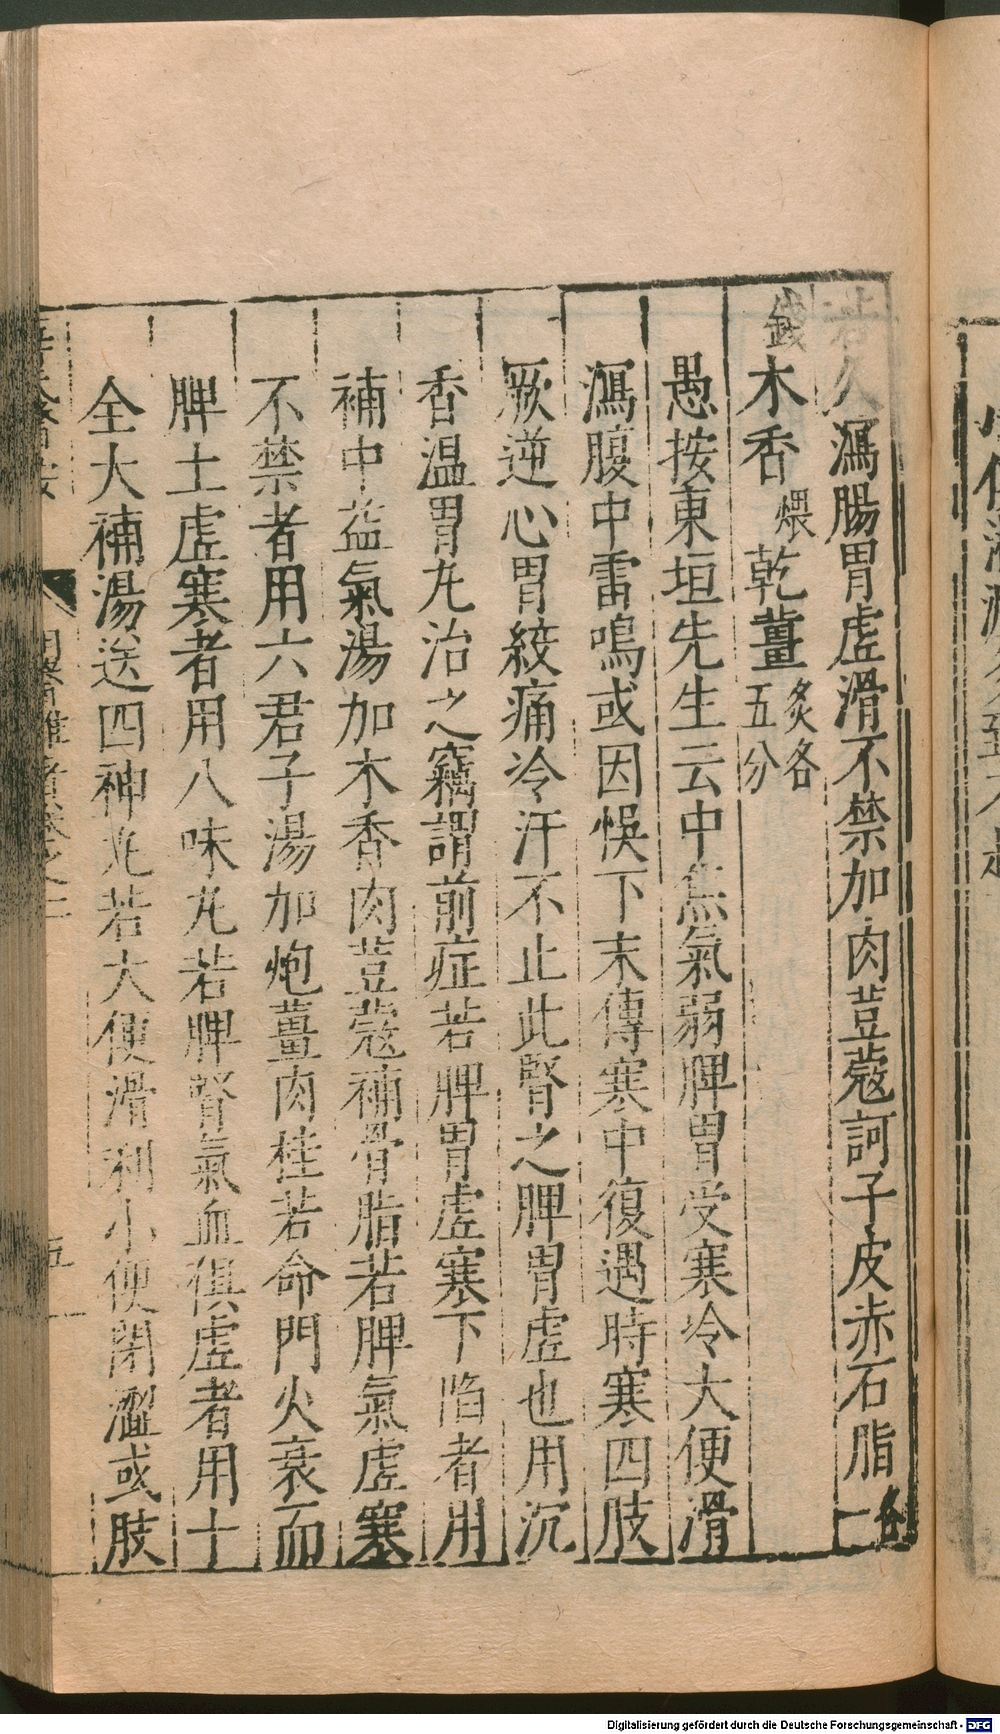 若久瀉腸胃虛滑不禁加肉荳蔻訶子皮赤石脂各一
錢木香煨乾薑炙各五分
愚按東垣先生云中焦氣弱脾胃受寒冷大便滑
瀉腹中雷鳴或因悞下末傳寒中復遇時寒四肢
厥逆心胃絞痛冷汗不止此腎之脾胃虛也用沉
香温胃丸治之竊謂前症若脾胃虛寒下陷者用
補中益氣湯加木香肉荳蔻補骨脂若脾氣虛寒
不禁者用六君子湯加炮薑肉桂若命門火衰而
脾土虛寒者用八味丸若脾腎氣血俱虛者用十
全大補湯送四神丸若大便滑利小便閉澀或肢
五
Digitalisierung gefördert durch die Deutsche Forschungsgemeinschaft - DFG